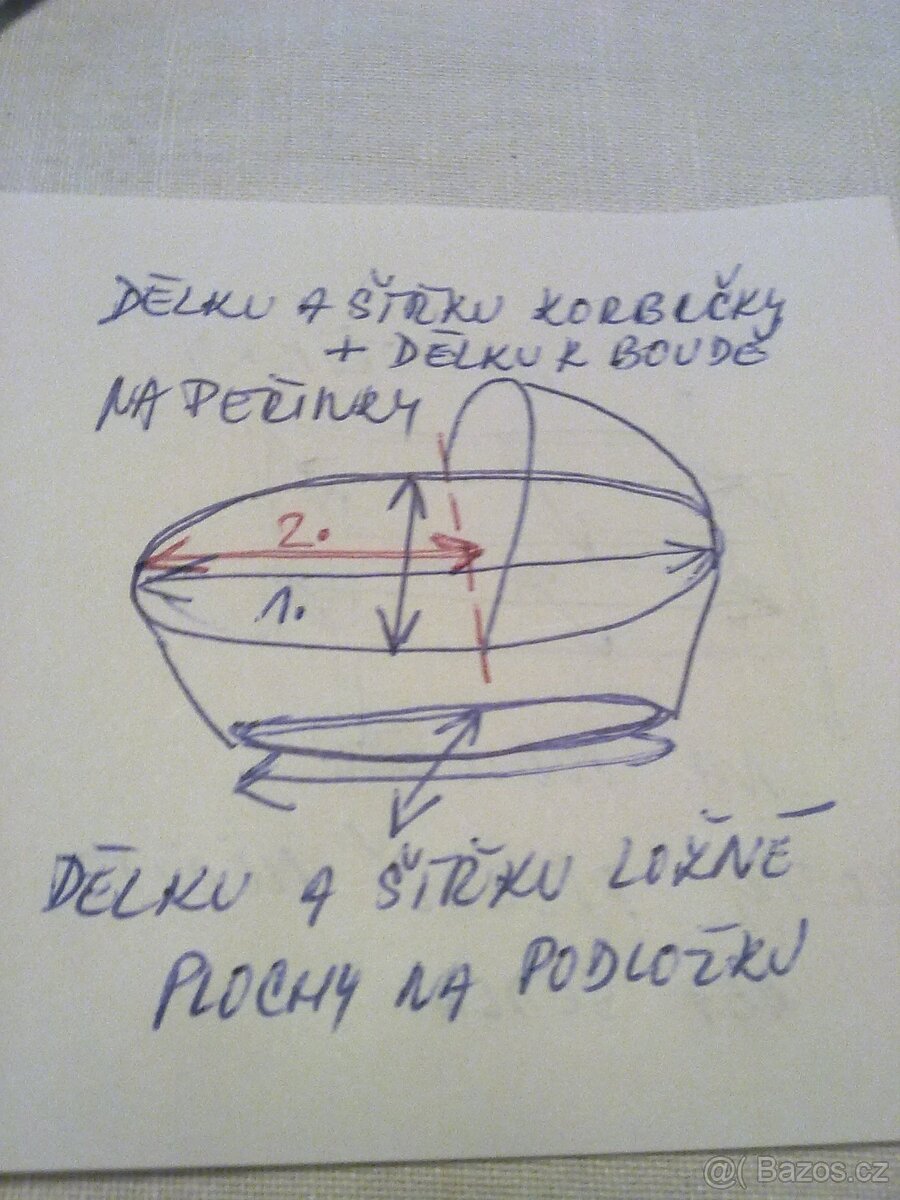 DÉLKU A ŠÍŘKU KORBIČKY
+ DÉLKU K BOUDĚ
NA PEŘINKY
2.
1.
DÉLKU A ŠÍŘKU LOŽNÉ
PLOCHY NA PODLOŽKU
@( Bazos.cz